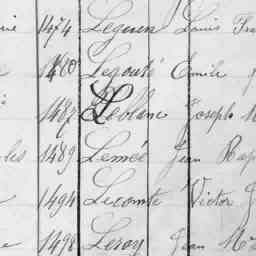 1474 Leguen Louis Fra
1480 Legouté Emile
1487 Leblanc Joseph
les 1489 Lemée Jean Bap
1494 Lecomte Victor J
1498 Leroy Jean M